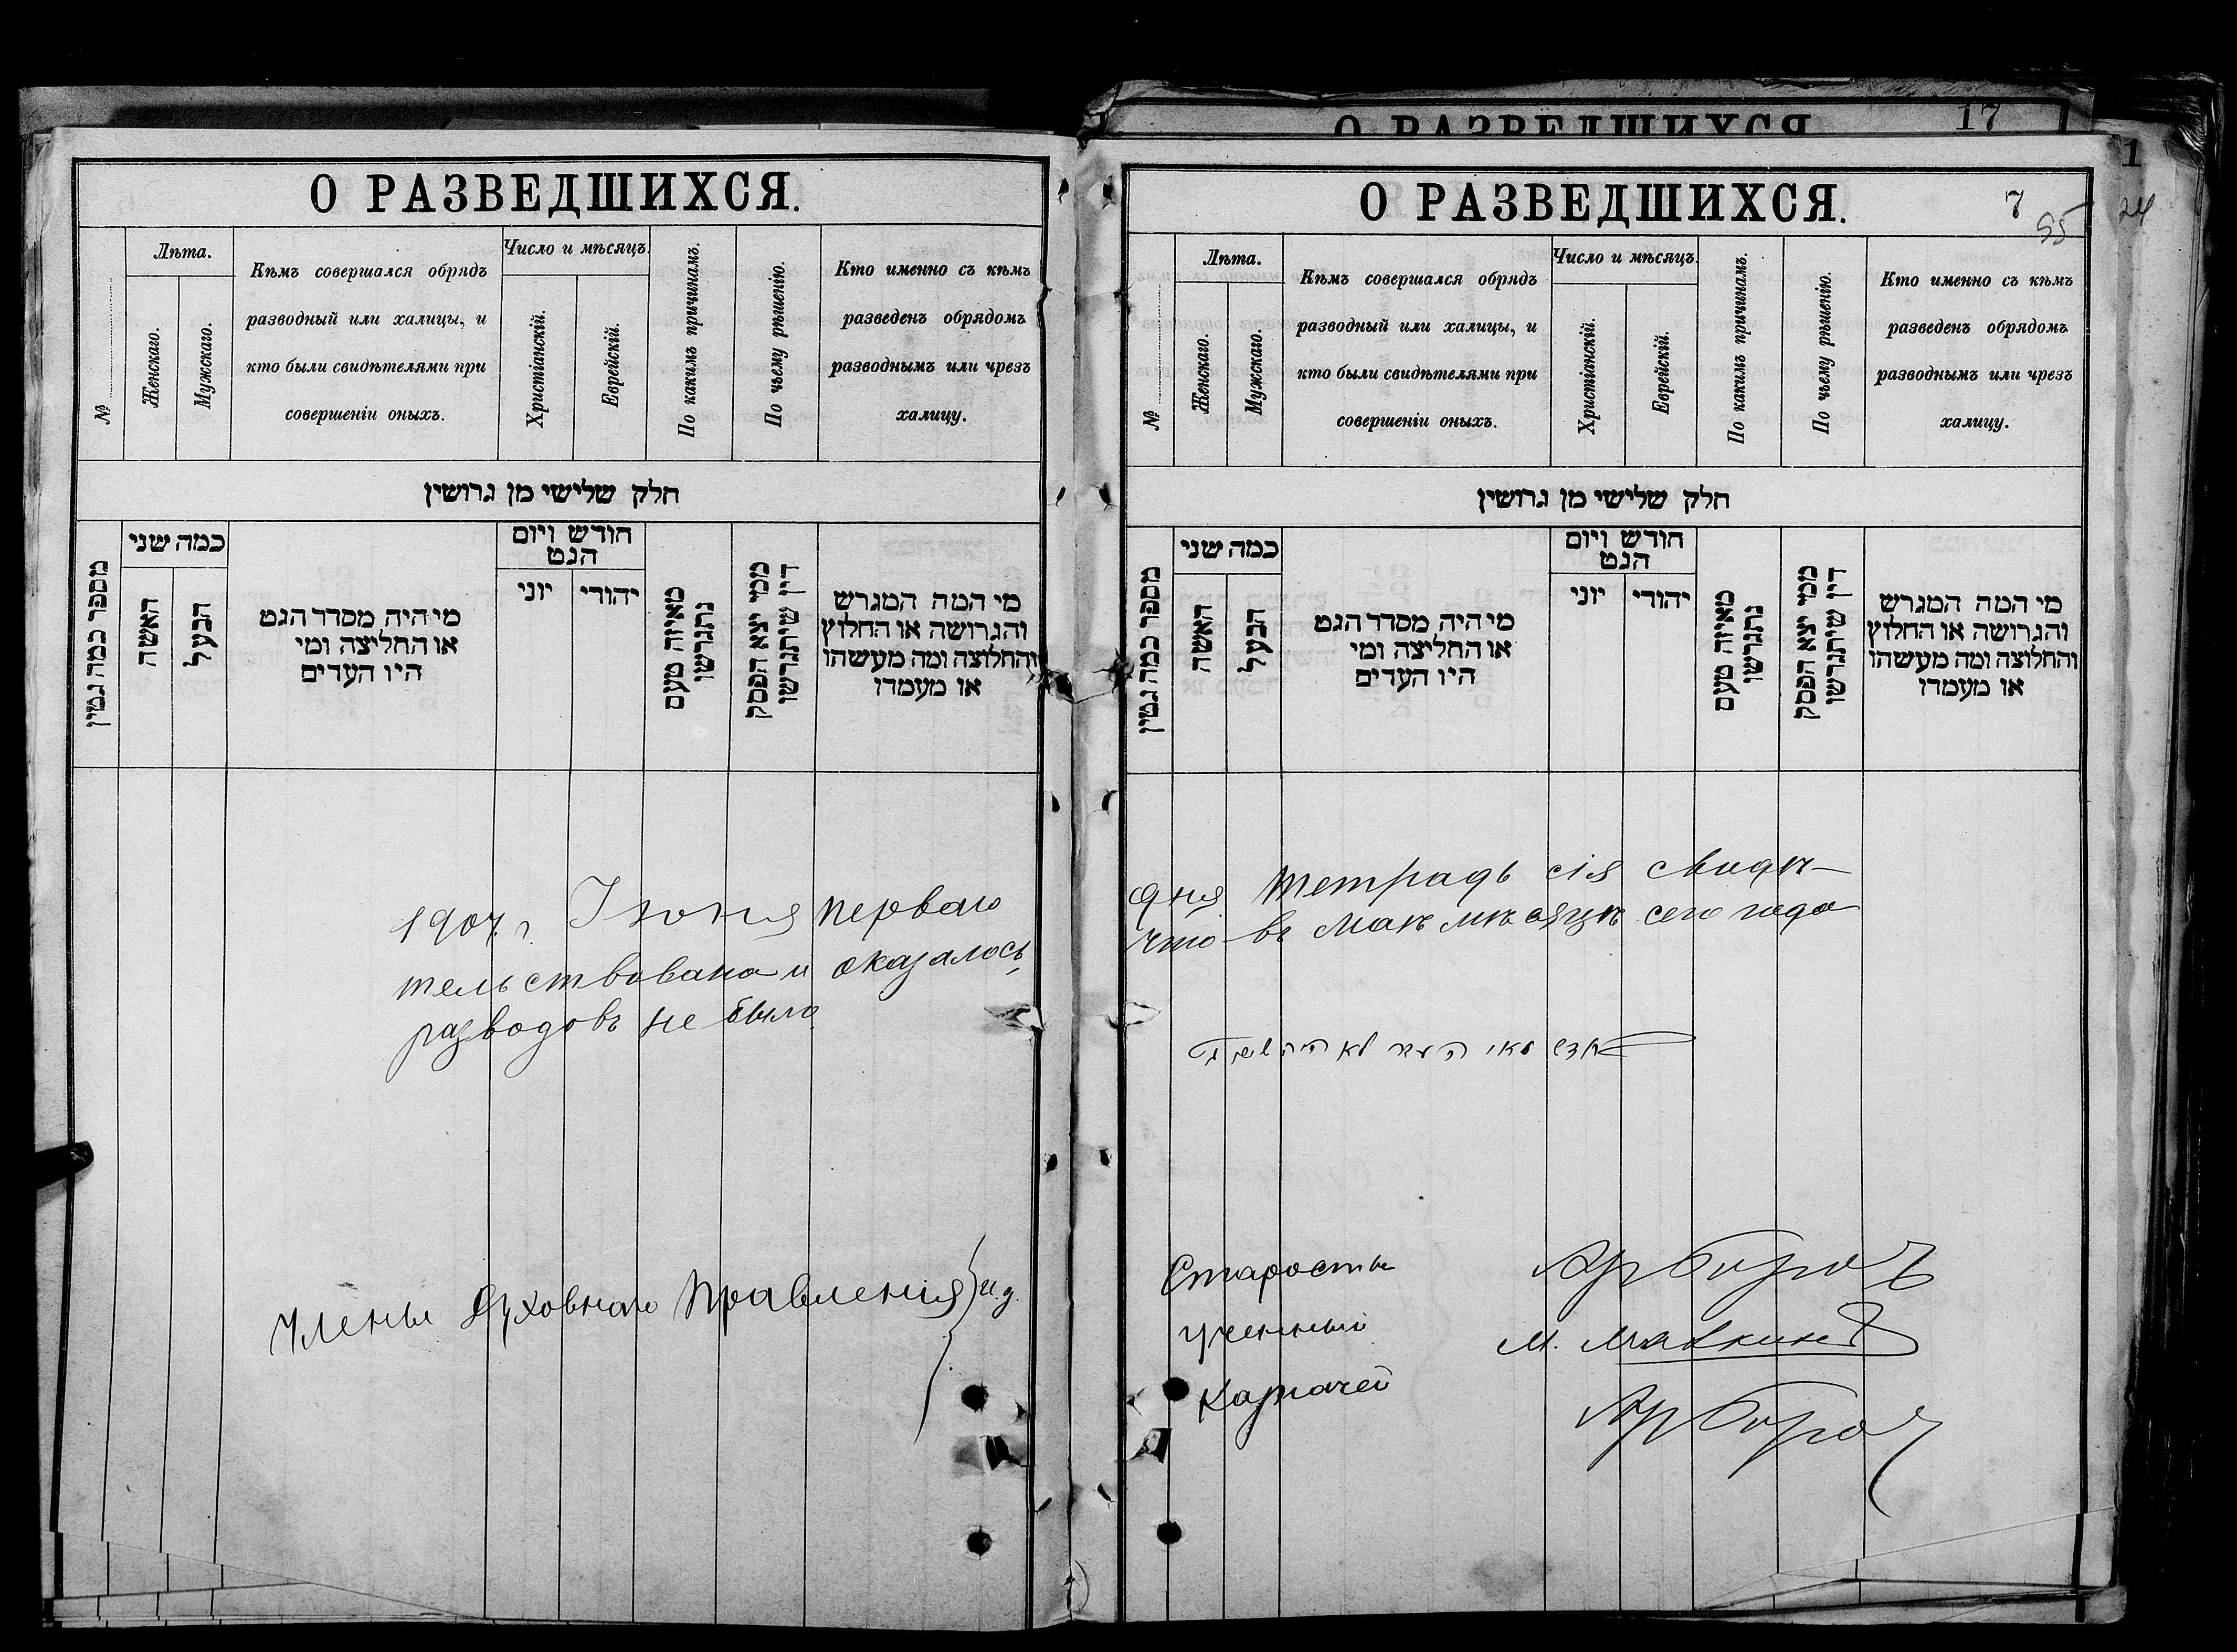 О РАЗВЕДШИХСЯ.
№
Лѣта.
Женскаго.
Мужскаго.
Кѣмъ совершался обрядъ
разводный или халицы, и
кто были свидѣтелями при
совершеніи оныхъ.
Число и мѣсяцъ.
Христіанскій.
Еврейскій.
По какимъ причинамъ.
По чьему рѣшенію.
Кто именно съ кѣмъ
разведенъ обрядомъ
разводнымъ или чрезъ
халицу.
חלק שלישי מן גרושין
מספר כמה גטין
כמה שני
האשה
הבעל
מי היה מסדר הגט
או החליצה ומי
היו העדים
חודש ויום
הגט
יוני
יהודי
מאיזה טעם
נתגרשו
ממי יצא הפסק
דין שיתגרשו
מי המה המגרש
והגרושה או החלוץ
והחלוצה ומה מעשהו
או מעמדו
1907 г. Іюня перваго
тельствована и оказалось,
разводовъ не было
Члены Духовнаго Правленія и.д.
17
О РАЗВЕДШИХСЯ
1
24
О РАЗВЕДШИХСЯ.
7
55
№
Лѣта.
Женскаго.
Мужскаго.
Кѣмъ совершался обрядъ
разводный или халицы, и
кто были свидѣтелями при
совершеніи оныхъ.
Число и мѣсяцъ.
Христіанскій.
Еврейскій.
По какимъ причинамъ.
По чьему рѣшенію.
Кто именно съ кѣмъ
разведенъ обрядомъ
разводнымъ или чрезъ
халицу.
חלק שלישי מן גרושין
מספר כמה גטין
כמה שני
האשה
הבעל
מי היה מסדר הגט
או החליצה ומי
היו העדים
חודש ויום
הגט
יוני
יהודי
מאיזה טעם
נתגרשו
ממי יצא הפסק
דין שיתגרשו
מי המה המגרש
והגרושה או החלוץ
והחלוצה ומה מעשהו
או מעמדו
дня тетрадь сія свидѣ-
что въ маѣ мѣсяцѣ сего года
חדש מאי העבר לא היה
Староста
ученный
М. Мавкинъ
Казначей